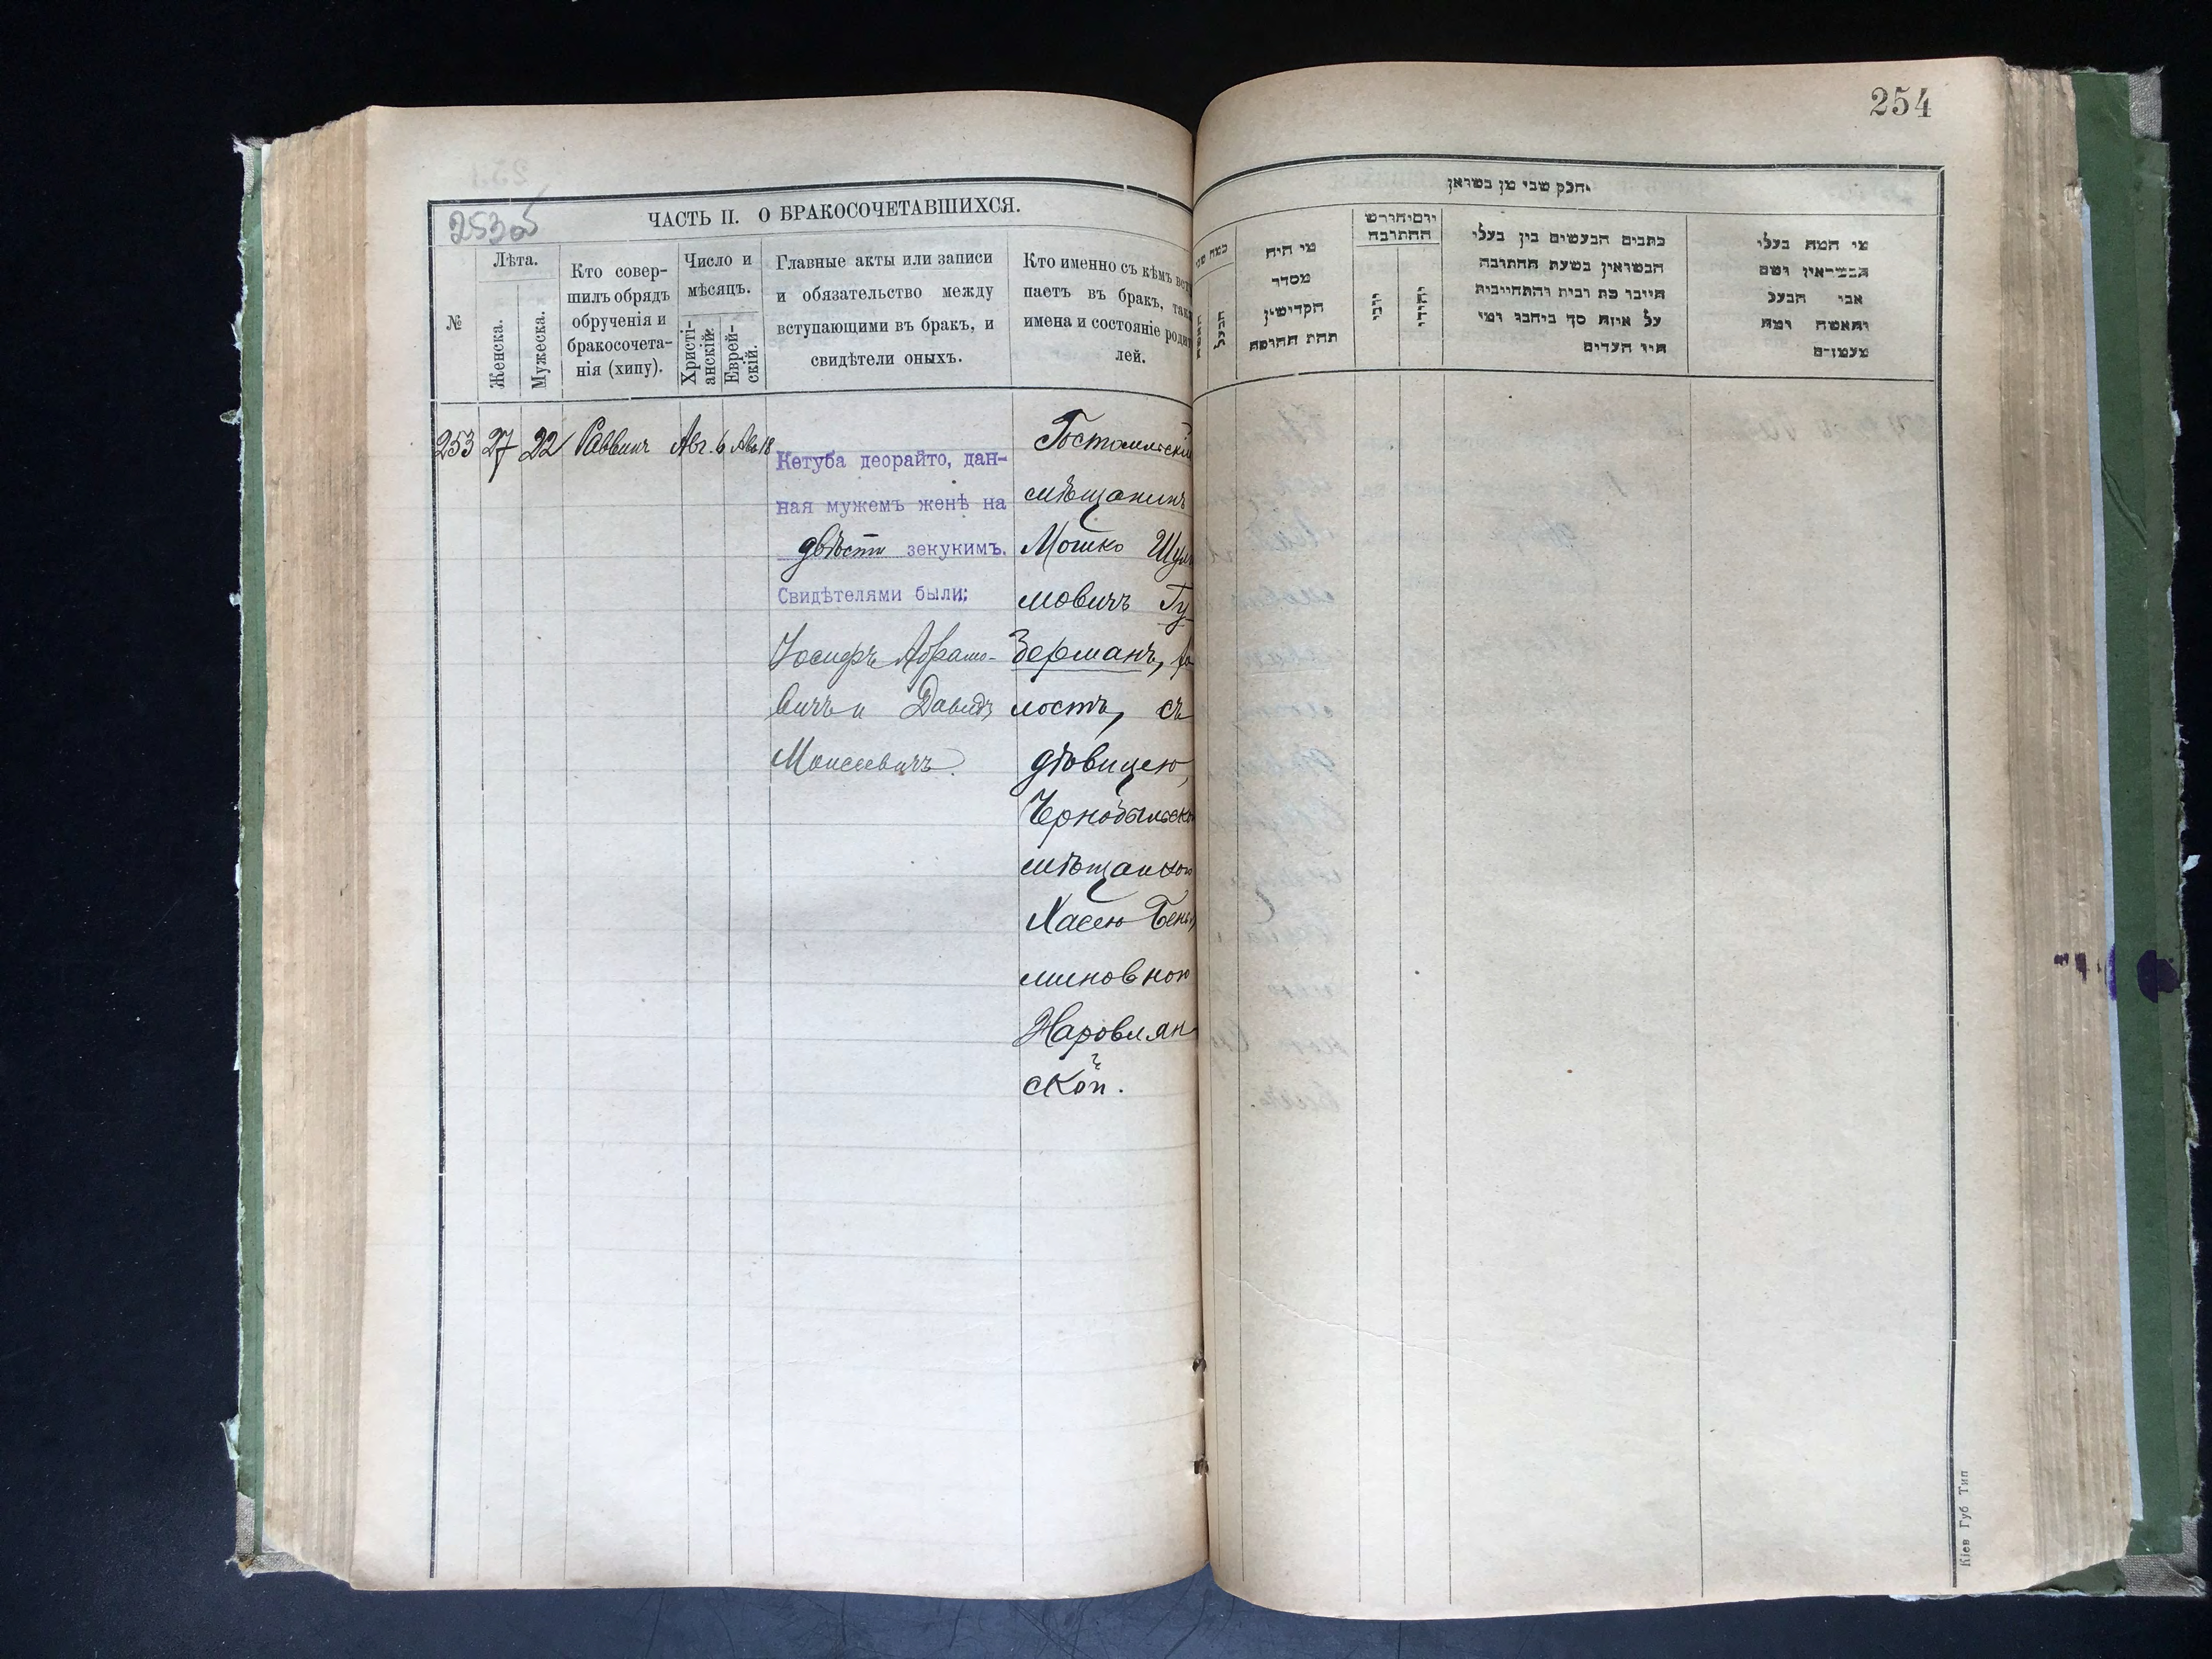 254
253об
ЧАСТЬ II. О БРАКОСОЧЕТАВШИХСЯ.
№
Лѣта.
Женска.
Мужеска.
Кто совер-
шилъ обрядъ
обрученія и
бракосочета-
нія (хипу).
Число и
мѣсяцъ.
Христі-
анскій.
Еврей-
скій.
Главные акты или записи
и обязательство между
вступающими въ бракъ, и
свидѣтели оныхъ.
Кто именно съ кѣмъ всту
паетъ въ бракъ, так
имена и состояніе родит
лей.
253 27 22 Раввинъ Авг. 6 Авъ 18
Кетуба деорайто, дан-
ная мужемъ женѣ на
двѣсти зекукимъ.
Свидѣтелями были:
Іосифъ Абрамо-
вичъ и Давидъ
Моисеевичъ.
Гостомельскій
мѣщанинъ
Мошко Шуль
мовичъ Гу-
зерманъ, хо
лостъ, съ
дѣвицею,
Чернобыльско
мѣщанкою
Хасею Бенья
миновною
Наровлян
ской.
חלק שני מן בשואן
כמה שני
הבעל
מי היה
מסדר
הקדישין
תחת החופה
יום וחודש
החתובה
יוני
יהודי
כתבים הנעשים בין בעלי
הנשואין בשעת החתובה
על איזה סך ביתבו ומי
היו העדים
מי המה בעלי
הנשואין ושם
אבי הבעל
והאשה ומה
מעמדם
Кіев Губ Тип